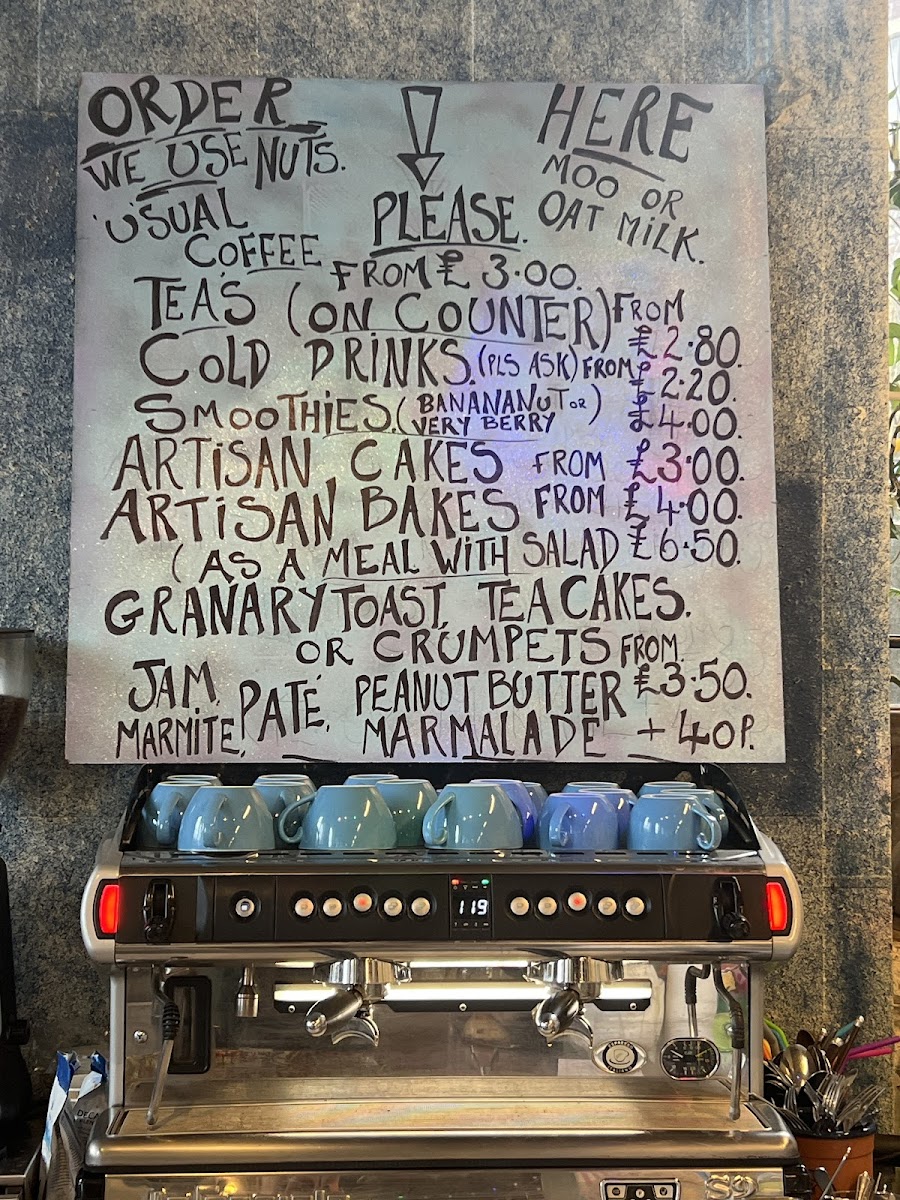 ORDER HERE
WE USE NUTS.
MOO OR
OAT MILK.
PLEASE.
USUAL
COFFEE FROM £3.00.
TEAS (ON COUNTER) FROM £2.80.
COLD DRINKS. (PLS ASK) FROM £2.20.
SMOOTHIES. (BANANANUT OR VERY BERRY) £4.00.
ARTISAN CAKES FROM £3.00.
ARTISAN BAKES FROM £4.00.
(AS A MEAL WITH SALAD £6.50.
GRANARY TOAST, TEACAKES.
OR CRUMPETS FROM £3.50.
JAM, PATÉ, PEANUT BUTTER
MARMITE, MARMALADE + 40P.
119